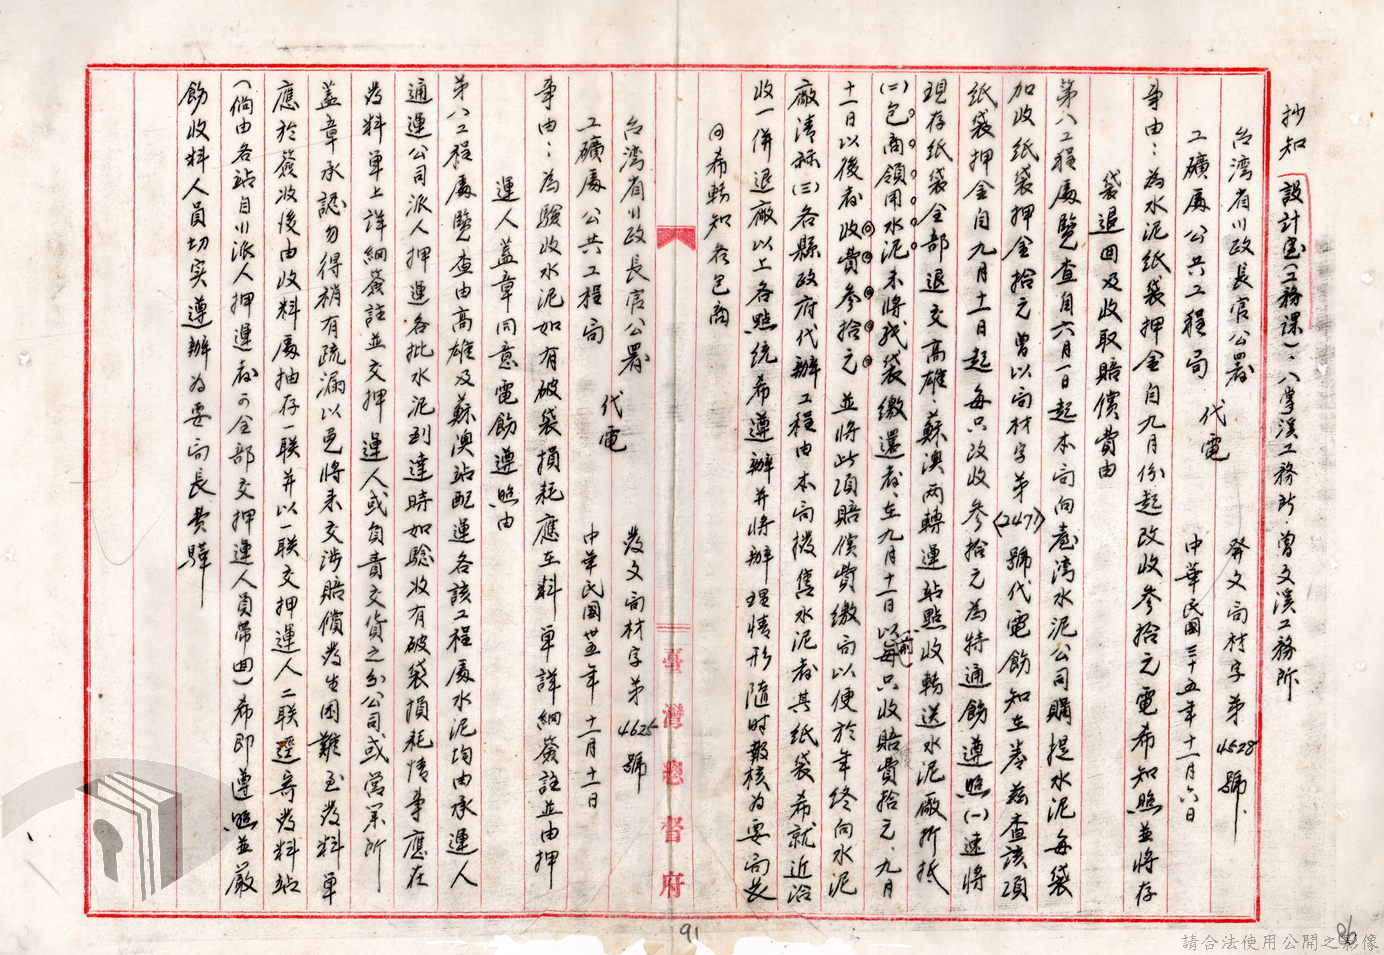 抄知(設計室(工務課)、八掌溪工務所、曾文溪工務所
台湾省川政長官公署
工礦處公共工程局
代電
發文局材字第4528號
中華民國三十五年十一月六日
事由：為水泥紙袋押金自九月份起改收參拾元電希知照並將存
袋退回及收取賠償費由
第八工程處覽查自六月一日起本局向臺湾水泥公司購提水泥每袋
加收紙袋押金拾元曾以局材字第(2471)號代電飭知在卷茲查該項
紙袋押金自九月十一日起每只改收參拾元為特通飭遵照(一)速將
現存紙袋全部退交高雄、蘇澳兩轉運站點收轉送水泥廠折抵
(二)包商領用水泥未將残袋繳還者、在九月十一日以前每只收賠費拾元、九月
十一日以後者收費參拾元並將此項賠償費繳局以便於年終向水泥
廠清算(三)各縣政府代辦工程由本局撥售水泥者其紙袋希就近洽
收一併退廠以上各點統希遵辦并將辦理情形隨時報核為要局長
㈣希轉知各包商
台湾省川政長官公署
工礦處公共工程局
代電
發文局材字第4625號
中華民國卅五年十一月十一日
事由：為驗收水泥如有破袋損耗應在料單詳細簽註並由押
運人蓋章同意電飭遵照由
第八工程處覽查由高雄及蘇澳站配運各該工程處水泥均由承運人
通運公司派人押運各批水泥到達時如驗收有破袋損耗情事應在
發料單上詳細簽註並交押運人或負責交貨之分公司或營業所
蓋章承認勿得稍有疏漏以免將來交涉賠償發生困難至發料單
應於簽收後由收料處抽存一联并以一联交押運人二联逕寄發料站
(倘由各站自川派人押運者可全部交押運人員帶回)希即遵照並嚴
飭收料人員切实遵辦為要局長費驊
臺灣總督府
91
86
請合法使用公開之影像